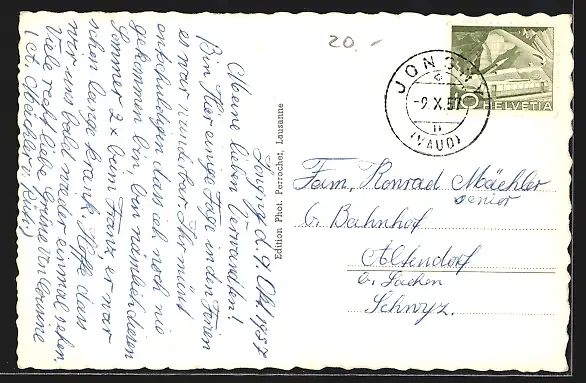 20.-
JONGNY
-9.X.57
(VAUD)
10
HELVETIA
Jongny d. 9. Okt. 1957
Meine lieben Verwandten!
Bin hier einige Tage in den Ferien
es war wunderbar. Ihr müsst
entschuldigen dass ich noch nie
gekommen bin, bin nämlich diesen
Sommer 2x beim Franz, er war
schon lange krank. Hoffe dass
wir uns bald wieder einmal sehen.
Viele recht liebe Grüsse von
Edition Phot. Perrochet, Lausanne
Fam. Konrad Mächler
senior
b. Bahnhof
Altendorf
b. Lachen
Schwyz.